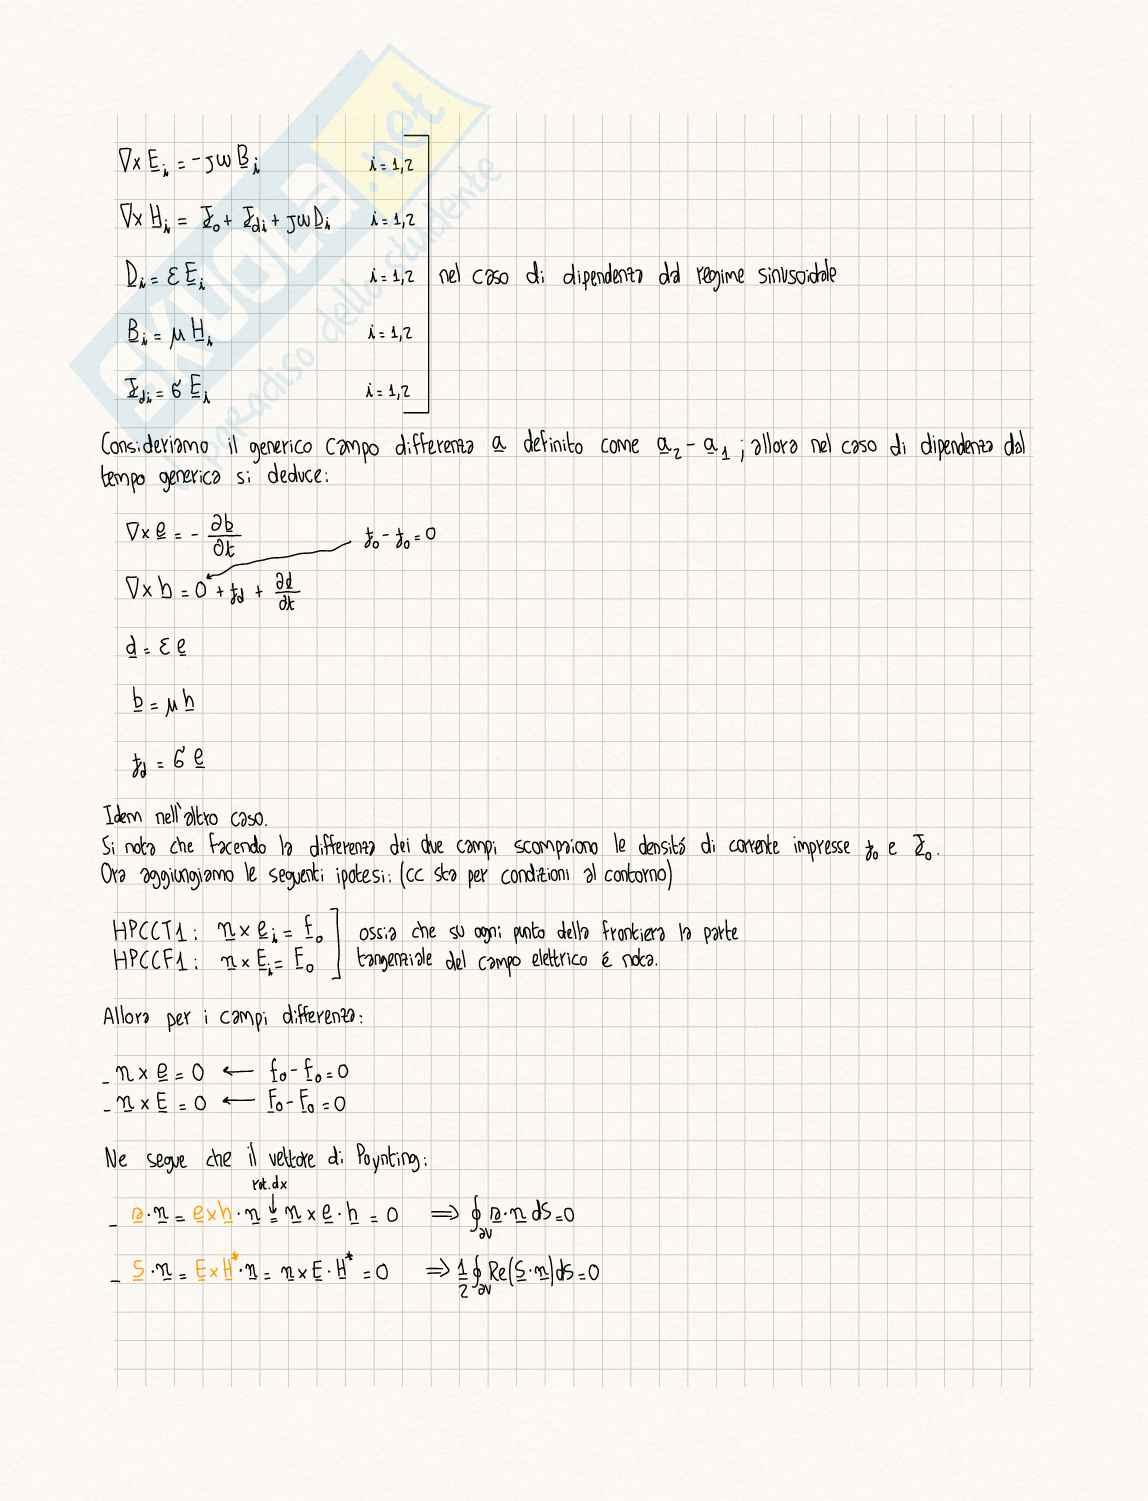 ∇ x E_i = -jω B_i   i = 1,2
∇ x H_i = J_0 + J_di + jω D_i   i = 1,2
D_i = ε E_i   i = 1,2   nel caso di dipendenza dal regime sinusoidale
B_i = μ H_i   i = 1,2
J_di = σ E_i   i = 1,2
Consideriamo il generico campo differenza a definito come a_2 - a_1 ; allora nel caso di dipendenza dal
tempo generica si deduce:
∇ x e = - ∂b/∂t   j_0 - j_0 = 0
∇ x h = 0 + j_d + ∂d/∂t
d = ε e
b = μ h
j_d = σ e
Idem nell'altro caso.
Si nota che facendo la differenza dei due campi scompaiono le densitá di corrente impresse j_0 e J_0.
Ora aggiungiamo le seguenti ipotesi: (cc sta per condizioni al contorno)
HPCCT1: n x e_i = f_0   ossia che su ogni punto della frontiera la parte
HPCCF1: n x E_i = F_0   tangenziale del campo elettrico é nota.
Allora per i campi differenza:
- n x e = 0 ← f_0 - f_0 = 0
- n x E = 0 ← F_0 - F_0 = 0
Ne segue che il vettore di Poynting:
rot.dx
- s · n = e x h · n = n x e · h = 0 ⟹ ∮_∂V s · n dS = 0
- S · n = E x H* · n = n x E · H* = 0 ⟹ 1/2 ∮_∂V Re(S · n) dS = 0
SKUOLA.net
il paradiso dello studente